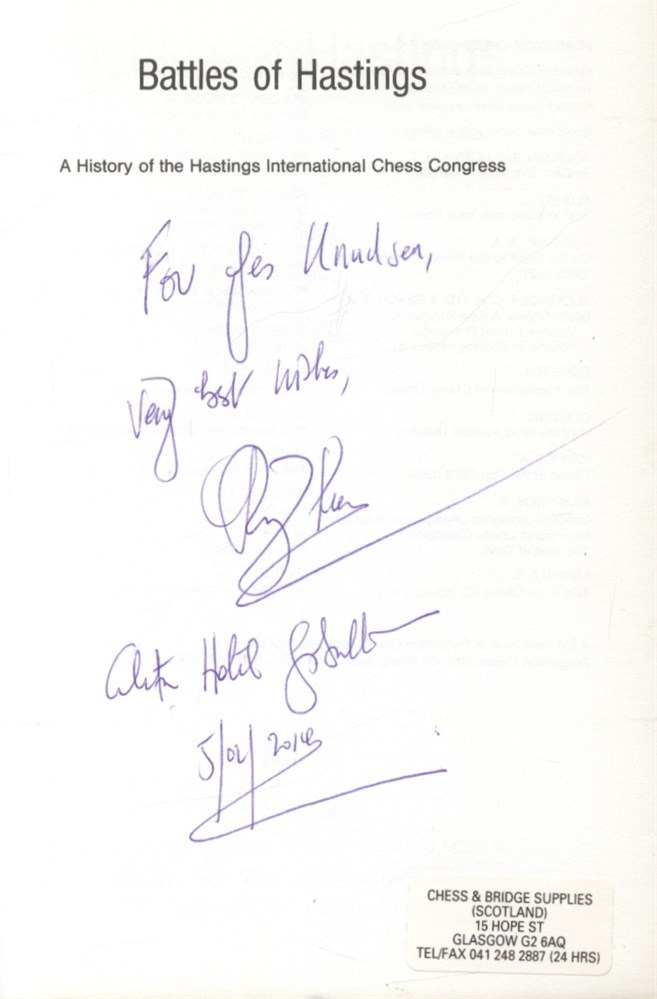 Battles of Hastings
A History of the Hastings International Chess Congress
For Jes Knudsen,
Very best wishes,
Hotel
5/02/2014
CHESS & BRIDGE SUPPLIES
(SCOTLAND)
15 HOPE ST
GLASGOW G2 6AQ
TEL/FAX 041 248 2887 (24 HRS)